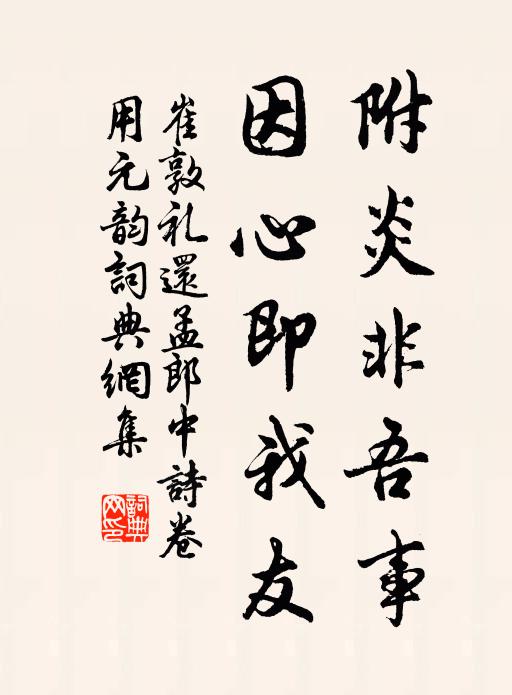 附炎非吾事
因心即我友
崔敦礼還孟郎中詩卷
用元韵詞典網集
詞典
网印